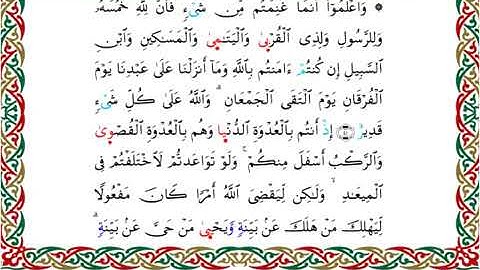 ۞ وَٱعۡلَمُوٓاْ أَنَّمَا غَنِمۡتُم مِّن شَيۡءٖ فَأَنَّ لِلَّهِ خُمُسَهُۥ
وَلِلرَّسُولِ وَلِذِي ٱلۡقُرۡبَىٰ وَٱلۡيَتَٰمَىٰ وَٱلۡمَسَٰكِينِ وَٱبۡنِ
ٱلسَّبِيلِ إِن كُنتُمۡ ءَامَنتُم بِٱللَّهِ وَمَآ أَنزَلۡنَا عَلَىٰ عَبۡدِنَا يَوۡمَ
ٱلۡفُرۡقَانِ يَوۡمَ ٱلۡتَقَى ٱلۡجَمۡعَانِۗ وَٱللَّهُ عَلَىٰ كُلِّ شَيۡءٖ
قَدِيرٌ إِذۡ أَنتُم بِٱلۡعُدۡوَةِ ٱلدُّنۡيَا وَهُم بِٱلۡعُدۡوَةِ ٱلۡقُصۡوَىٰ
وَٱلرَّكۡبُ أَسۡفَلَ مِنكُمۡۚ وَلَوۡ تَوَاعَدتُّمۡ لَٱخۡتَلَفۡتُمۡ فِي
ٱلۡمِيعَٰدِ وَلَٰكِن لِّيَقۡضِيَ ٱللَّهُ أَمۡرٗا كَانَ مَفۡعُولٗا
لِّيَهۡلِكَ مَنۡ هَلَكَ عَنۢ بَيِّنَةٖ وَيَحۡيَىٰ مَنۡ حَيَّ عَنۢ بَيِّنَةٖۗ